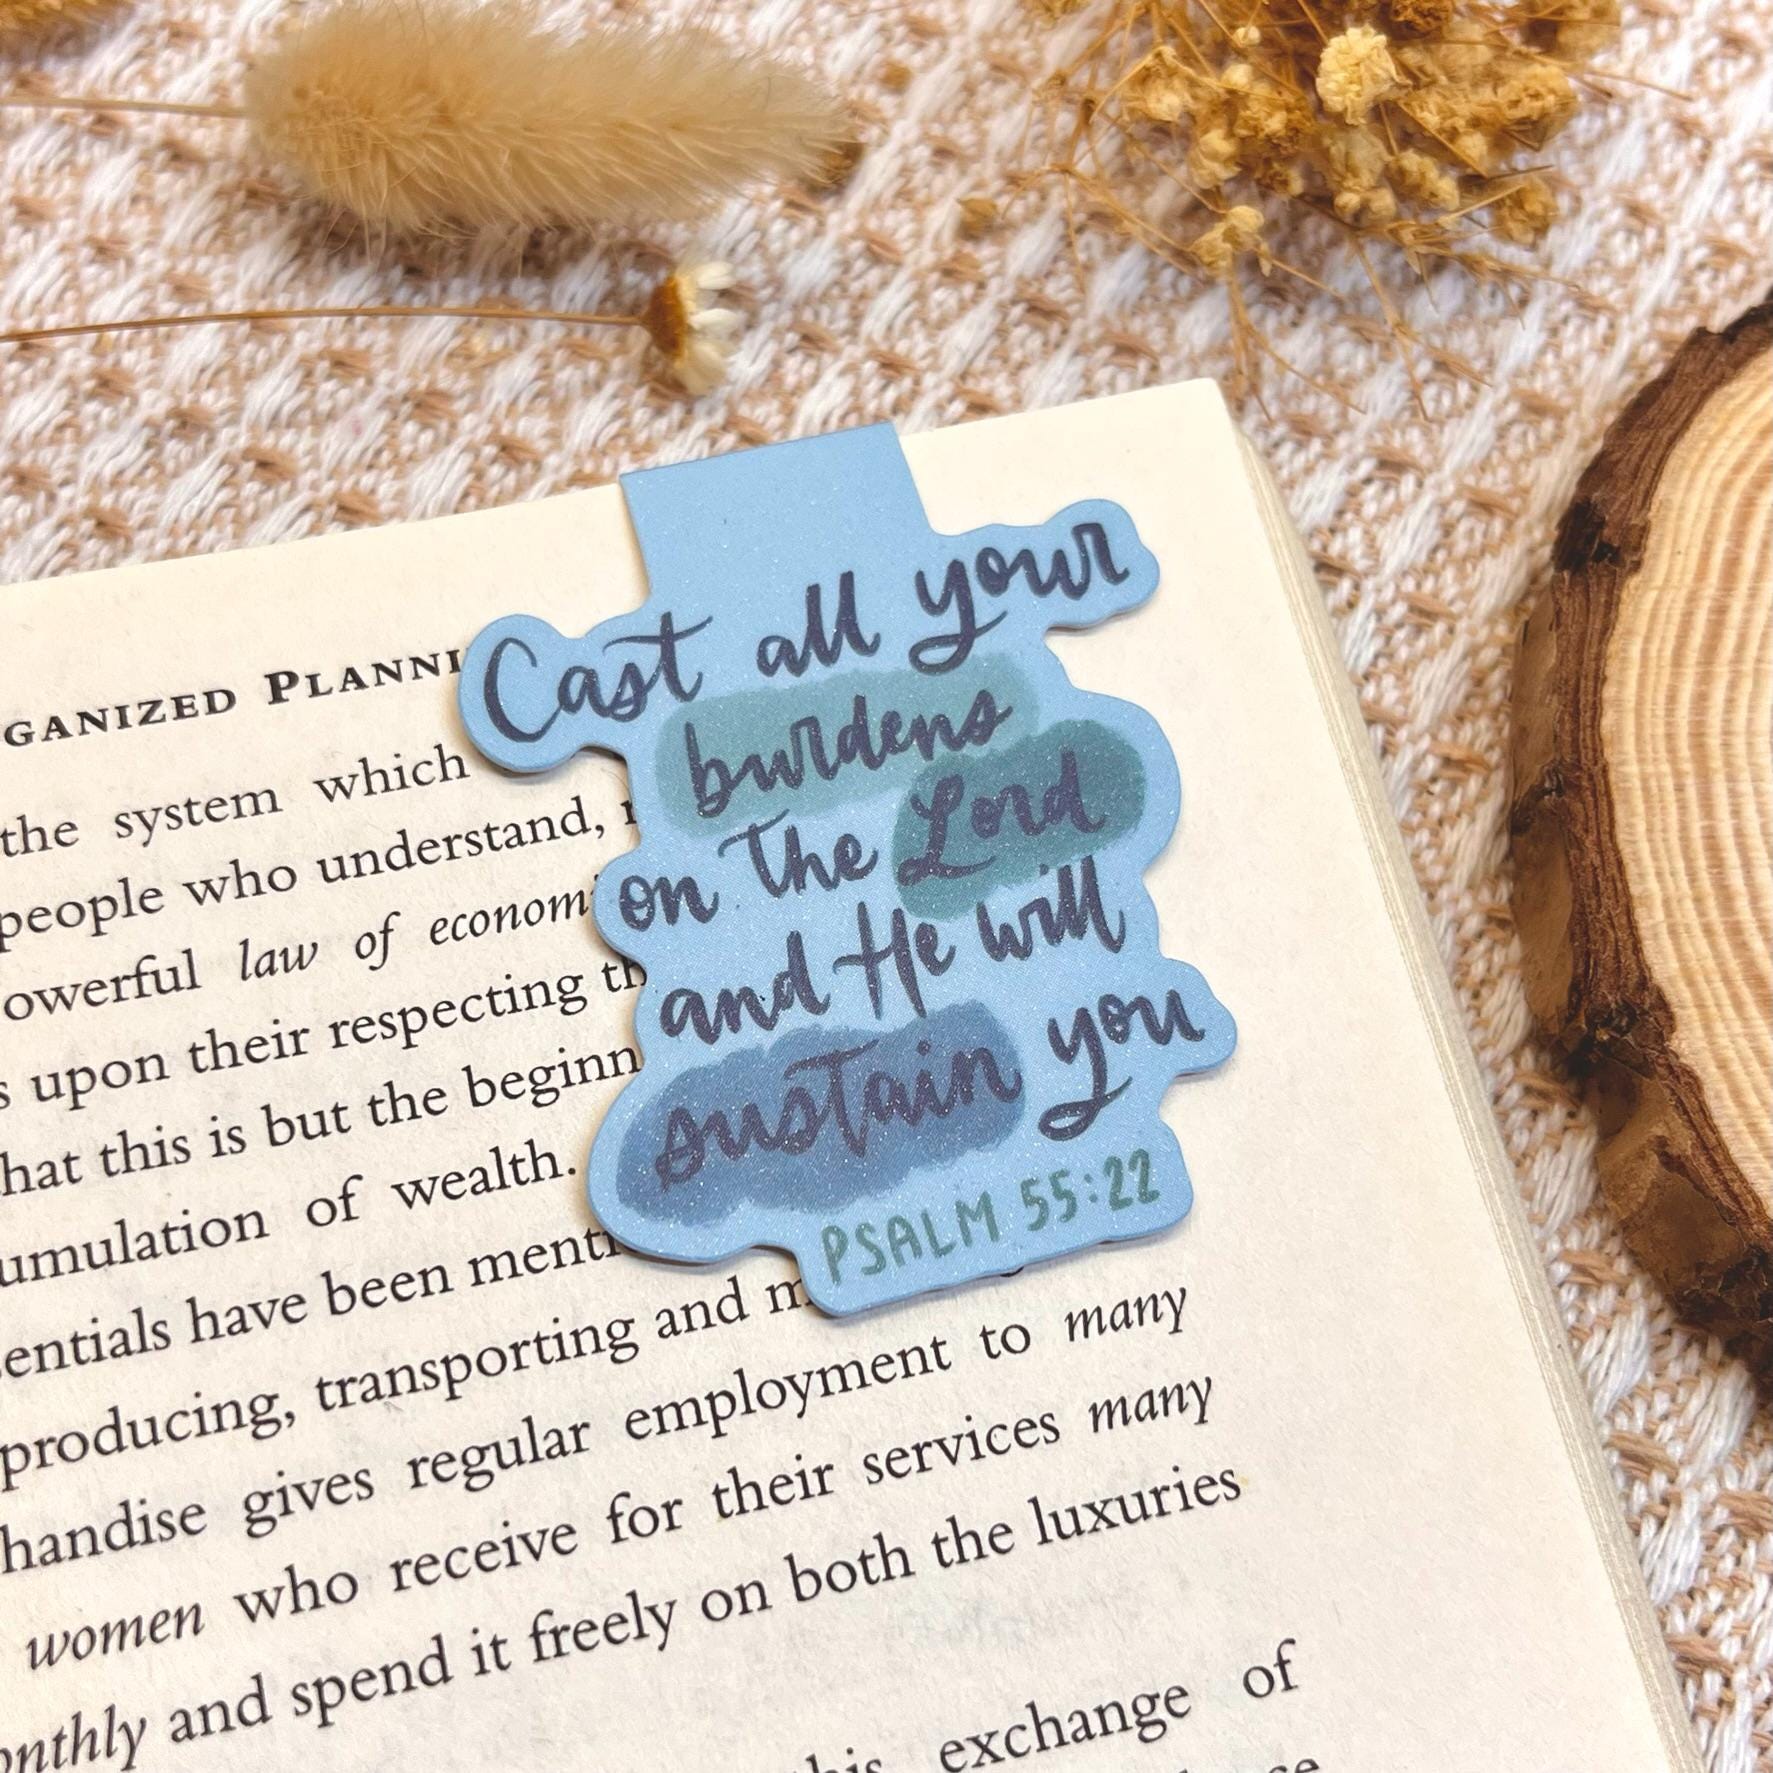 Cast all your
burdens
on the Lord
and He will
sustain you
PSALM 55:22
GANIZED PLANNI
the system which
people who understand,
owerful law of econom
s upon their respecting th
hat this is but the beginn
umulation of wealth.
sentials have been menti
producing, transporting and m
handise gives regular employment to many
women who receive for their services many
onthly and spend it freely on both the luxuries
his exchange of